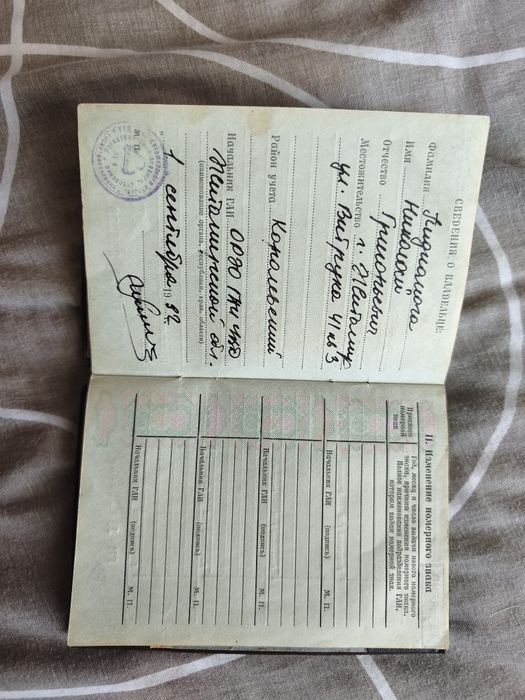 СВЕДЕНИЯ О ВЛАДЕЛЬЦЕ:
Фамилия
Имя Николай
Отчество Григорьевич
Местожительство г. Житомир
ул. Витрука 41 кв 3
Район учета Королевский
Начальник ГАИ ОРЭО ГАИ УВД
Житомирской обл.
(наименование органа, республики, края, области)
"1" сентября 1987.
М. П.
II. Изменение номерного знака
Присвоен номерной знак
Год, месяц и число выдачи нового номерного
знака, причина изменения номерного знака.
Полное наименование подразделения ГАИ,
которым выдан номерной знак.
Начальник ГАИ (подпись) М. П.
Начальник ГАИ (подпись) М. П.
Начальник ГАИ (подпись) М. П.
Начальник ГАИ (подпись) М. П.